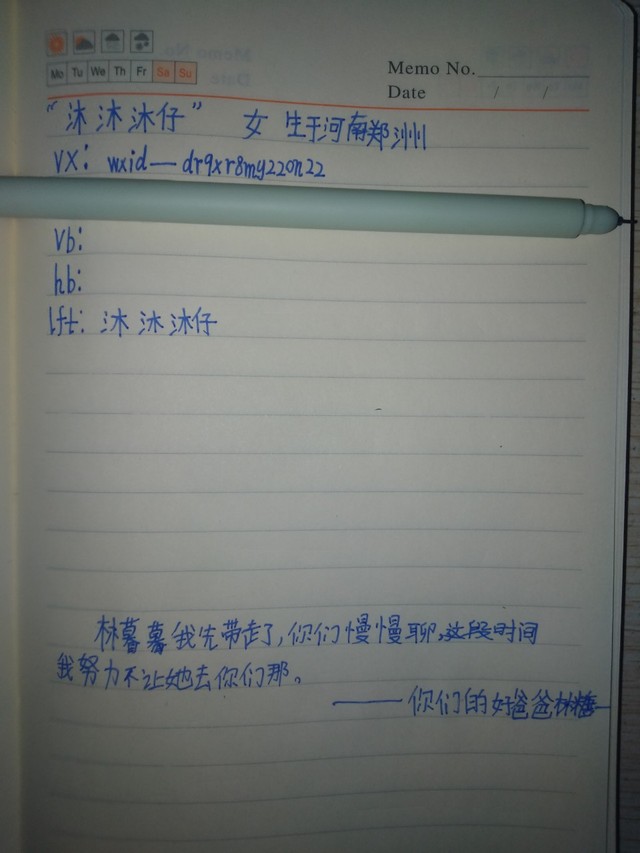 Mo Tu We Th Fr Sa Su
Memo No.
Date / /
“沐沐沐仔” 女 生于河南郑州
VX: wxid—dr9xr8my22on22
vb:
hb:
lft: 沐沐沐仔
林暮暮我先带走了,你们慢慢聊,这段时间
我努力不让她去你们那。
——你们的好爸爸林